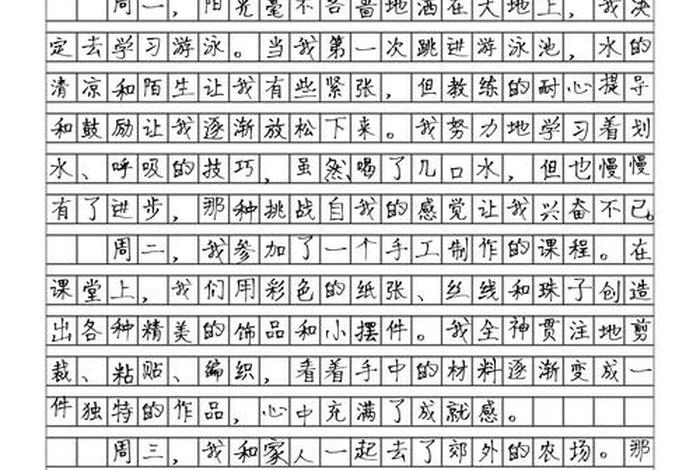 周一，阳光毫不吝啬地洒在大地上，我决
定去学习游泳。当我第一次跳进游泳池，水的
清凉和陌生让我有些紧张，但教练的耐心提导
和鼓励让我逐渐放松下来。我努力地学习着划
水、呼吸的技巧，虽然喝了几口水，但也慢慢
有了进步，那种挑战自我的感觉让我兴奋不已。
周二，我参加了一个手工制作的课程。在
课堂上，我们用彩色的纸张、丝线和珠子创造
出各种精美的饰品和小摆件。我全神贯注地剪
裁、粘贴、编织，看着手中的材料逐渐变成一
件独特的作品，心中充满了成就感。
周三，我和家人一起去了郊外的农场。那